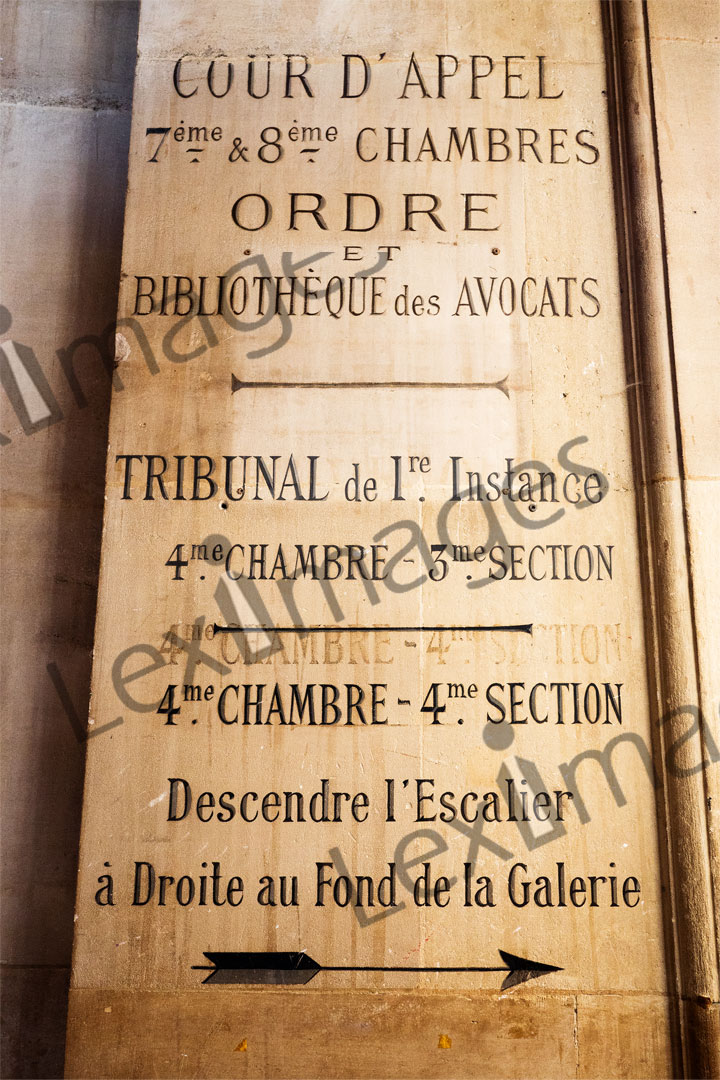 COUR D'APPEL
7ème & 8ème CHAMBRES
ORDRE
ET
BIBLIOTHÈQUE des AVOCATS
TRIBUNAL de 1re. Instance
4me. CHAMBRE - 3me. SECTION
4me. CHAMBRE - 4me. SECTION
4me. CHAMBRE - 4me. SECTION
Descendre l'Escalier
à Droite au Fond de la Galerie
LexIimages
LexIimages
LexIimages